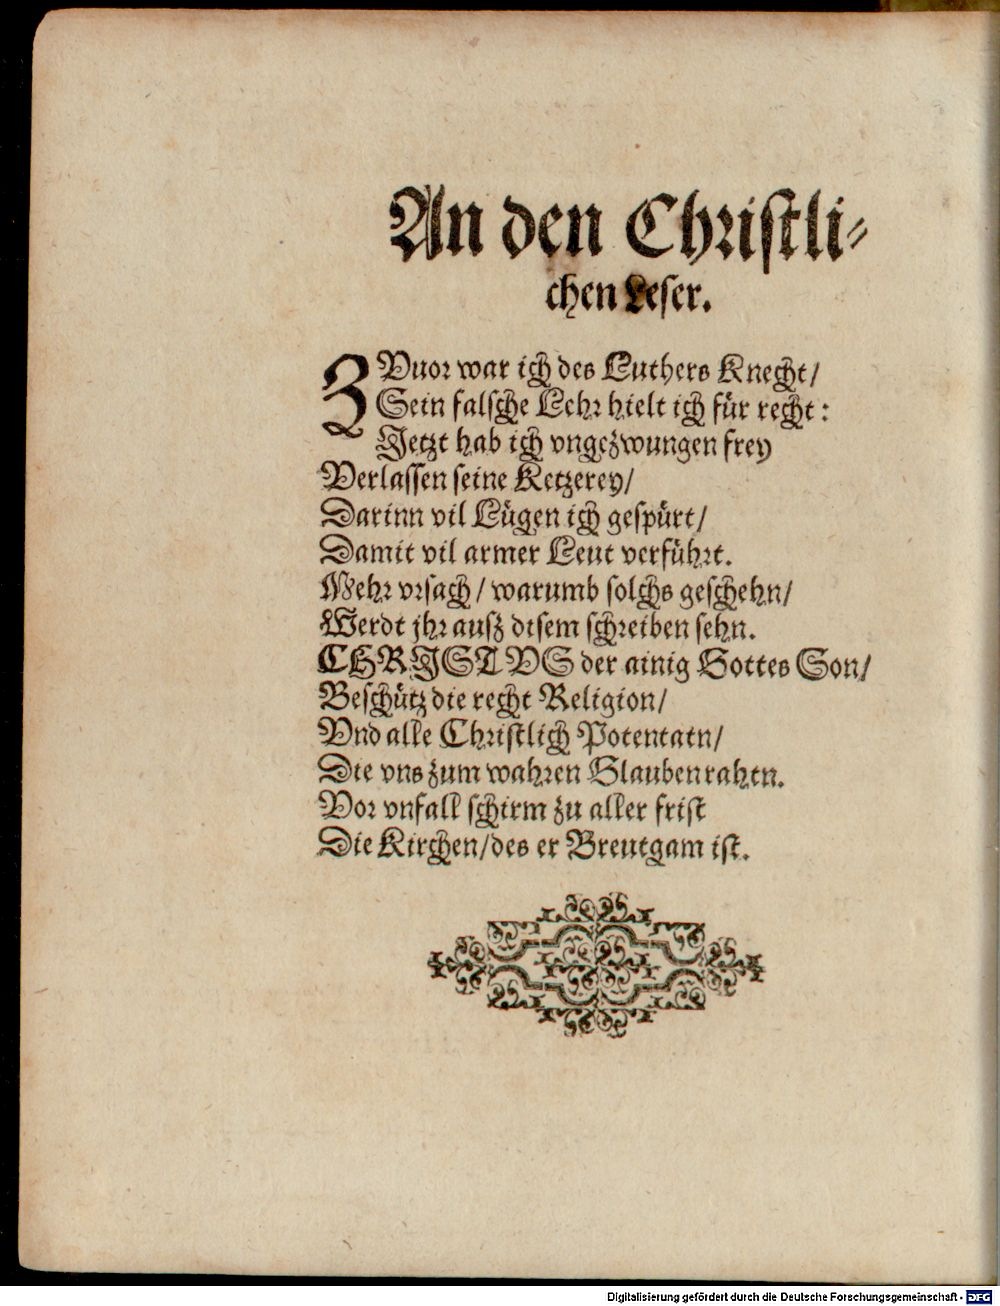 An den Christli⸗
chen Leser.
ZVuor war ich des Luthers Knecht/
Sein falsche Lehr hielt ich für recht:
Jetzt hab ich vngezwungen frey
Verlassen seine Ketzerey/
Darinn vil Lügen ich gespürt/
Damit vil armer Leut verführt.
Mehr vrsach/ warumb solchs geschehn/
Werdt jhr außz disem schreiben sehn.
CHRJSTVS der ainig Gottes Son/
Beschütz die recht Religion/
Vnd alle Christlich Potentatn/
Die vns zum wahren Glauben rahtn.
Vor vnfall schirm zu aller frist
Die Kirchen/ des er Breutgam ist.
Digitalisierung gefördert durch die Deutsche Forschungsgemeinschaft - DFG